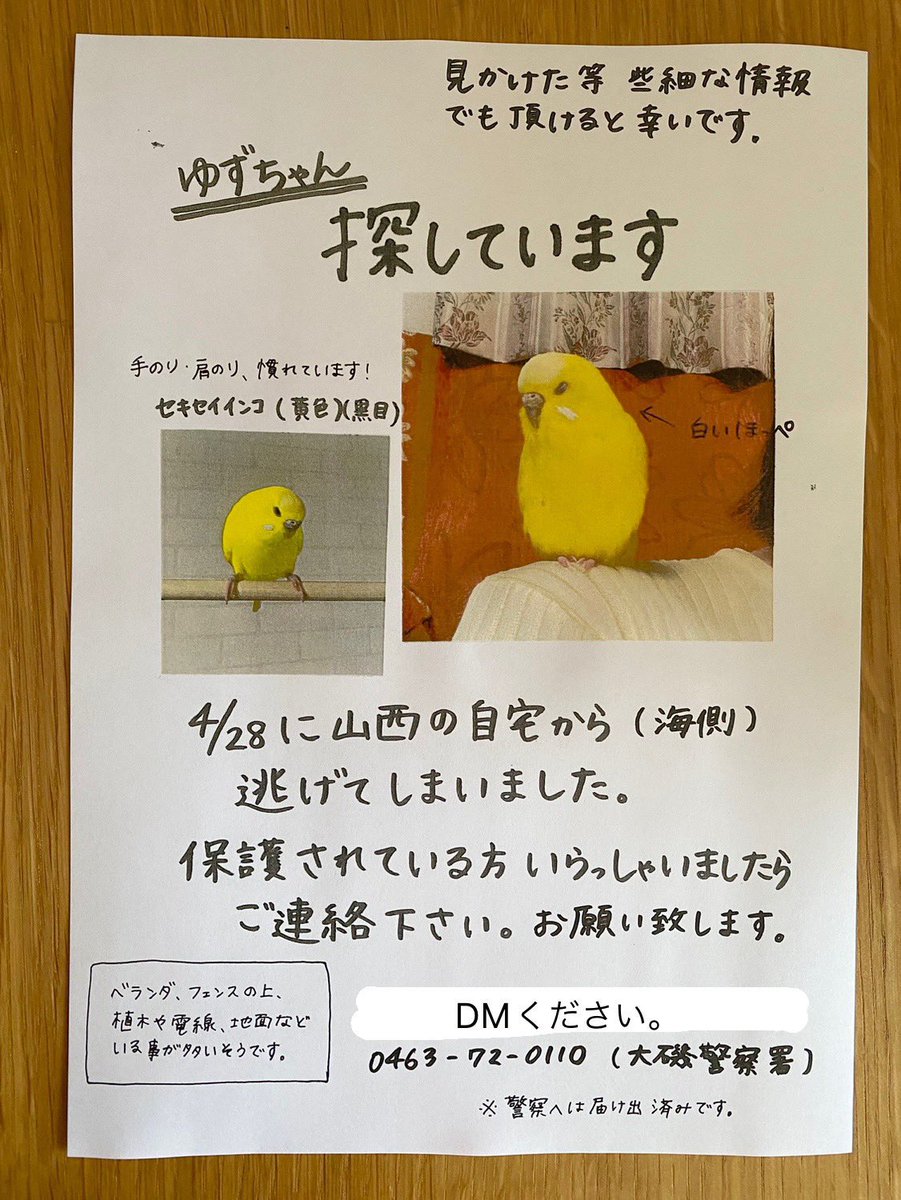 見かけた等 些細な情報
でも頂けると幸いです。
ゆずちゃん
探しています
手のり・肩のり、慣れています!
セキセイインコ(黄色)(黒目)
白いほっぺ
4/28に山西の自宅から(海側)
逃げてしまいました。
保護されている方いらっしゃいましたら
ご連絡下さい。お願い致します。
ベランダ、フェンスの上、
植木や電線、地面など
いる事が多いそうです。
DMください。
0463-72-0110(大磯警察署)
※警察へは届け出済みです。